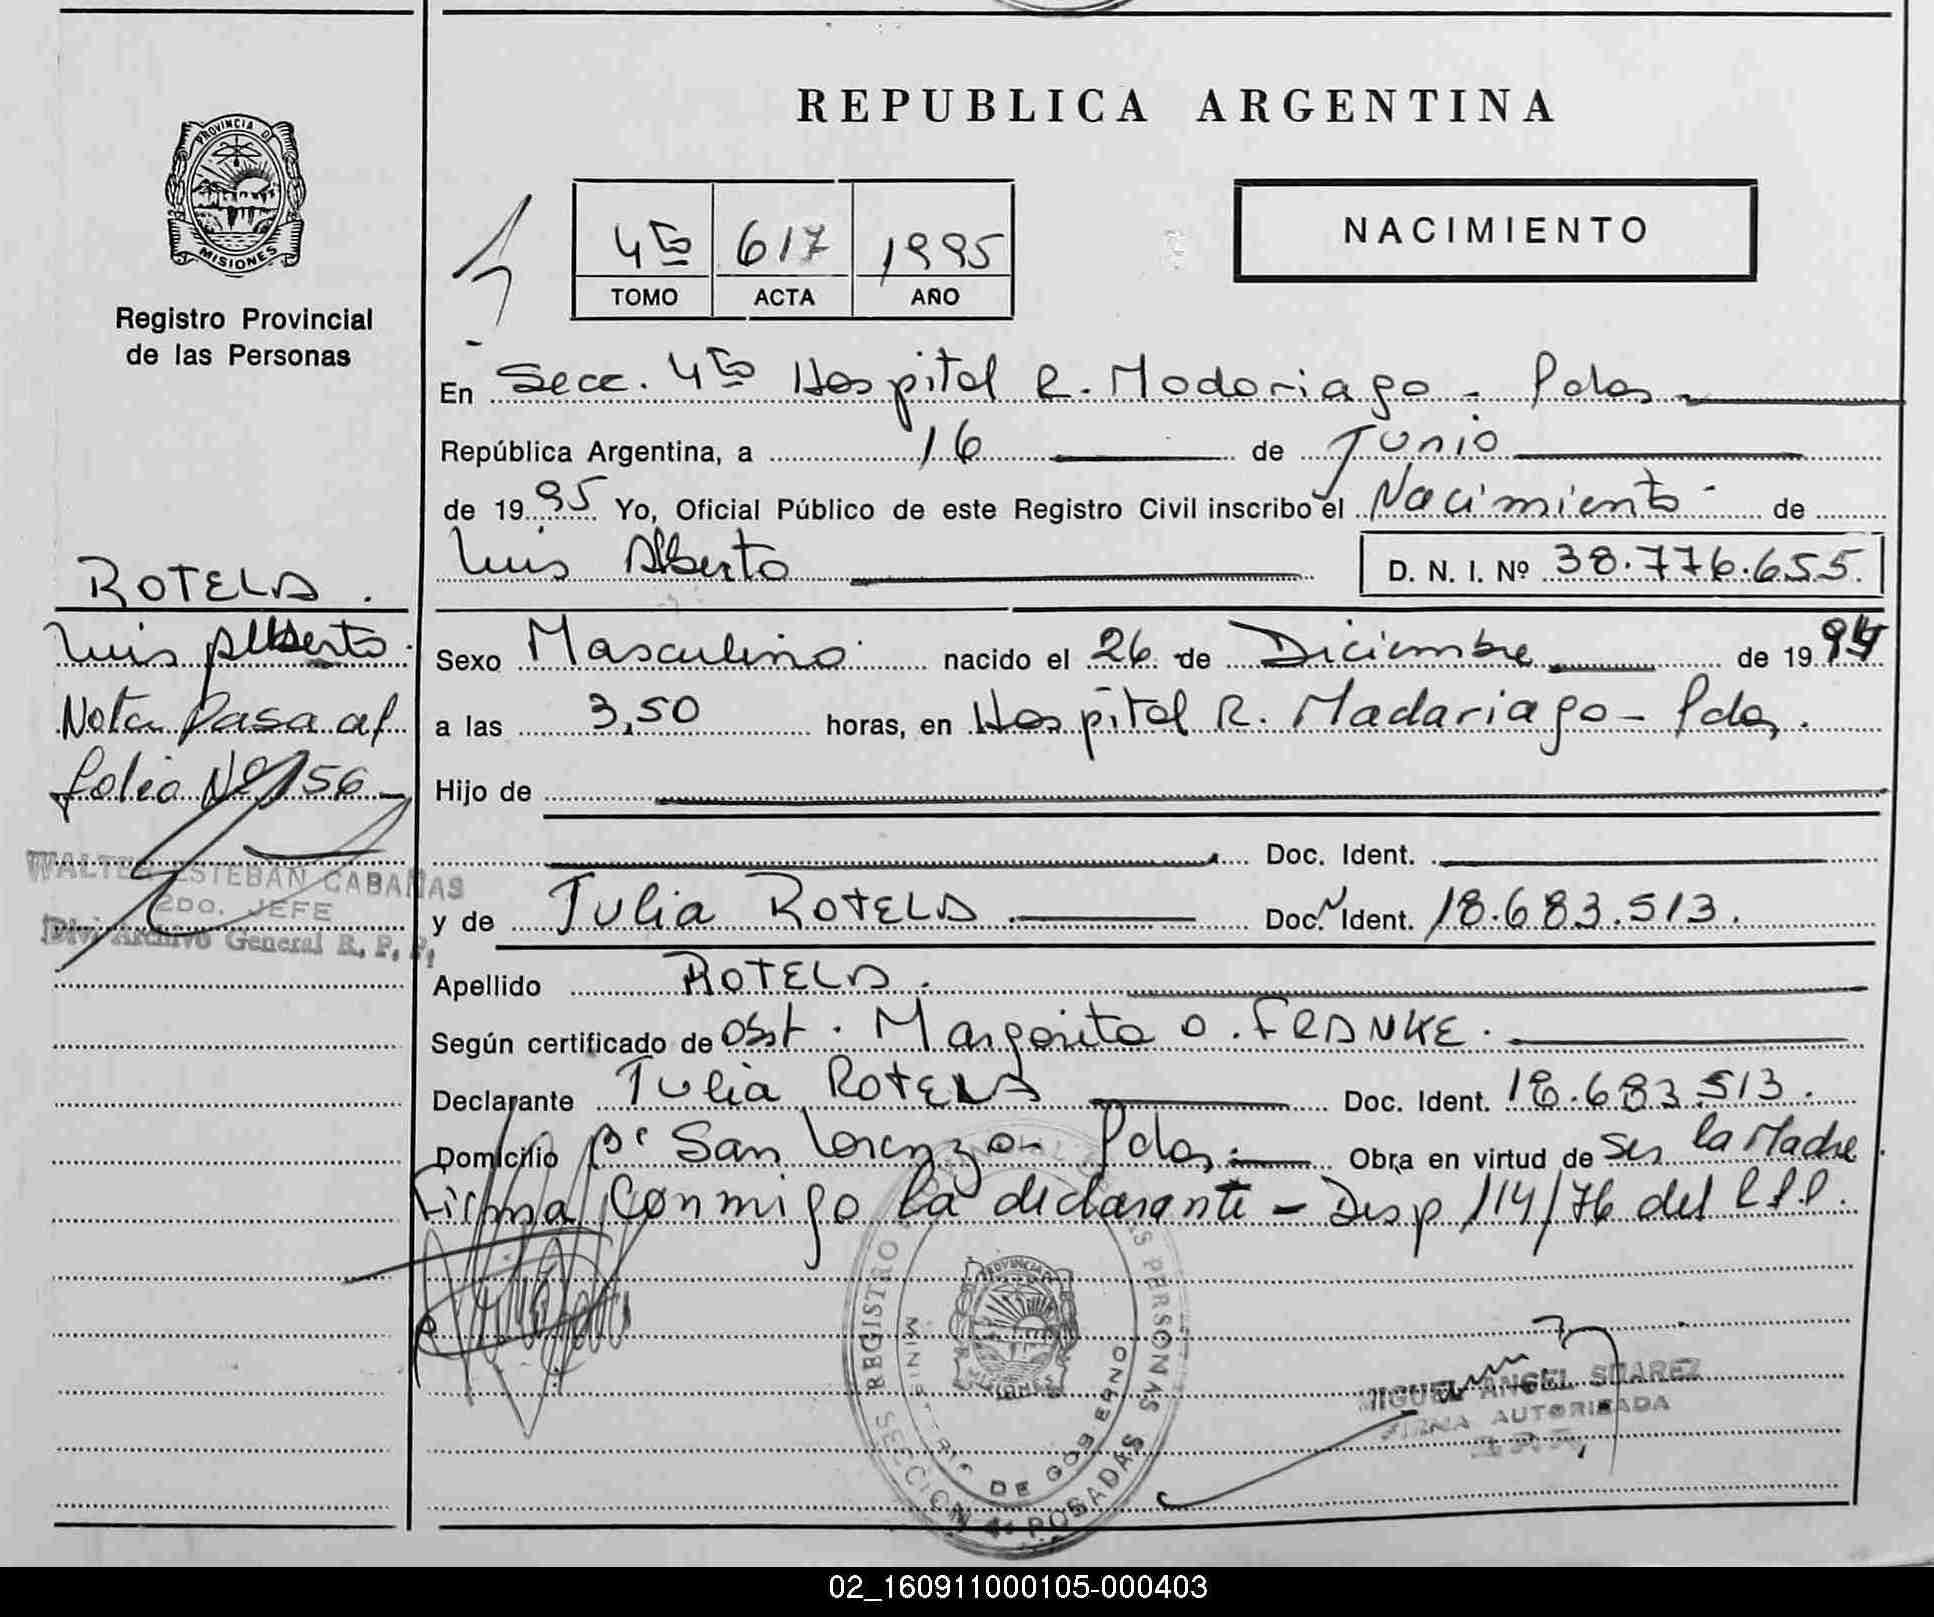 REPUBLICA ARGENTINA
PROVINCIA D
MISIONES
Registro Provincial
de las Personas
4to 617 1995
TOMO ACTA AÑO
NACIMIENTO
En Secc. 4to Hospital R. Madariaga - Pdas
República Argentina, a 16 de Junio
de 1995 Yo, Oficial Público de este Registro Civil inscribo el Nacimiento de
Luis Alberto D. N. I. Nº 38.776.655.
ROTELA.
Luis Alberto.
Nota Pasa al
folio Nº 156
WALTER ESTEBAN CABAÑAS
2DO. JEFE
Div. Archivo General R. P. P.
Sexo Masculino nacido el 26 de Diciembre de 1994
a las 3,50 horas, en Hospital R. Madariaga - Pdas.
Hijo de
Doc. Ident.
y de Julia ROTELA Doc. Ident. 18.683.513.
Apellido ROTELA.
Según certificado de Obst. Margarita O. FRANKE.
Declarante Julia ROTELA Doc. Ident. 18.683.513.
Domicilio Bº San Lorenzo - Pdas. Obra en virtud de ser la Madre.
Firma conmigo la declarante - Disp 114/76 del R.P.P.
REGISTRO PERSONAS
MINISTERIO DE GOBERNO
PROVINCIA DE
MISIONES
SECCION 4a POSADAS
MIGUEL ANGEL SUAREZ
FIRMA AUTORIZADA
02_160911000105-000403